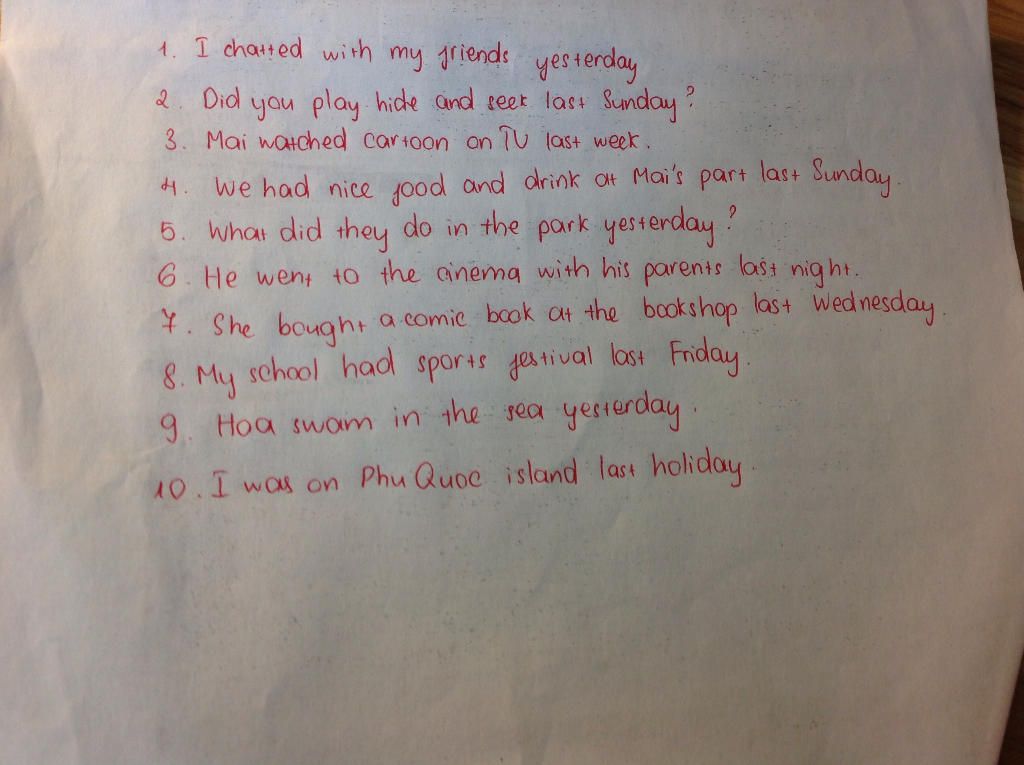 1. I chatted with my friends yesterday
2. Did you play hide and seek last Sunday?
3. Mai watched cartoon on TV last week.
4. We had nice food and drink at Mai's part last Sunday.
5. What did they do in the park yesterday?
6. He went to the cinema with his parents last night.
7. She bought a comic book at the bookshop last Wednesday.
8. My school had sports festival last Friday.
9. Hoa swam in the sea yesterday.
10. I was on Phu Quoc island last holiday.